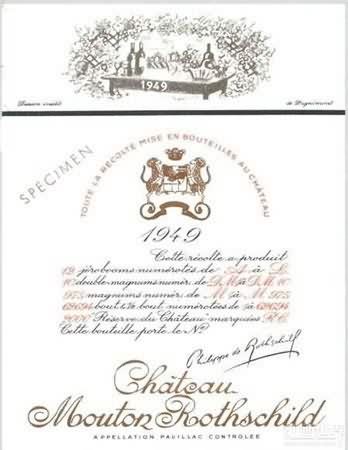 1949
Dessin inédit de Dignimont
SPÉCIMEN
TOUTE LA RÉCOLTE MISE EN BOUTEILLES AU CHÂTEAU
1949
Cette récolte a produit
jéroboams numérotés de A à L
double-magnums numér. de D.M à D.M 10
975 magnums numér. de M à M 975
bout. numérotées de
"Réserve du Château" marquées R.C.
Cette bouteille porte le No.
Philippe de Rothschild
Château
Mouton Rothschild
APPELLATION PAUILLAC CONTRÔLÉE